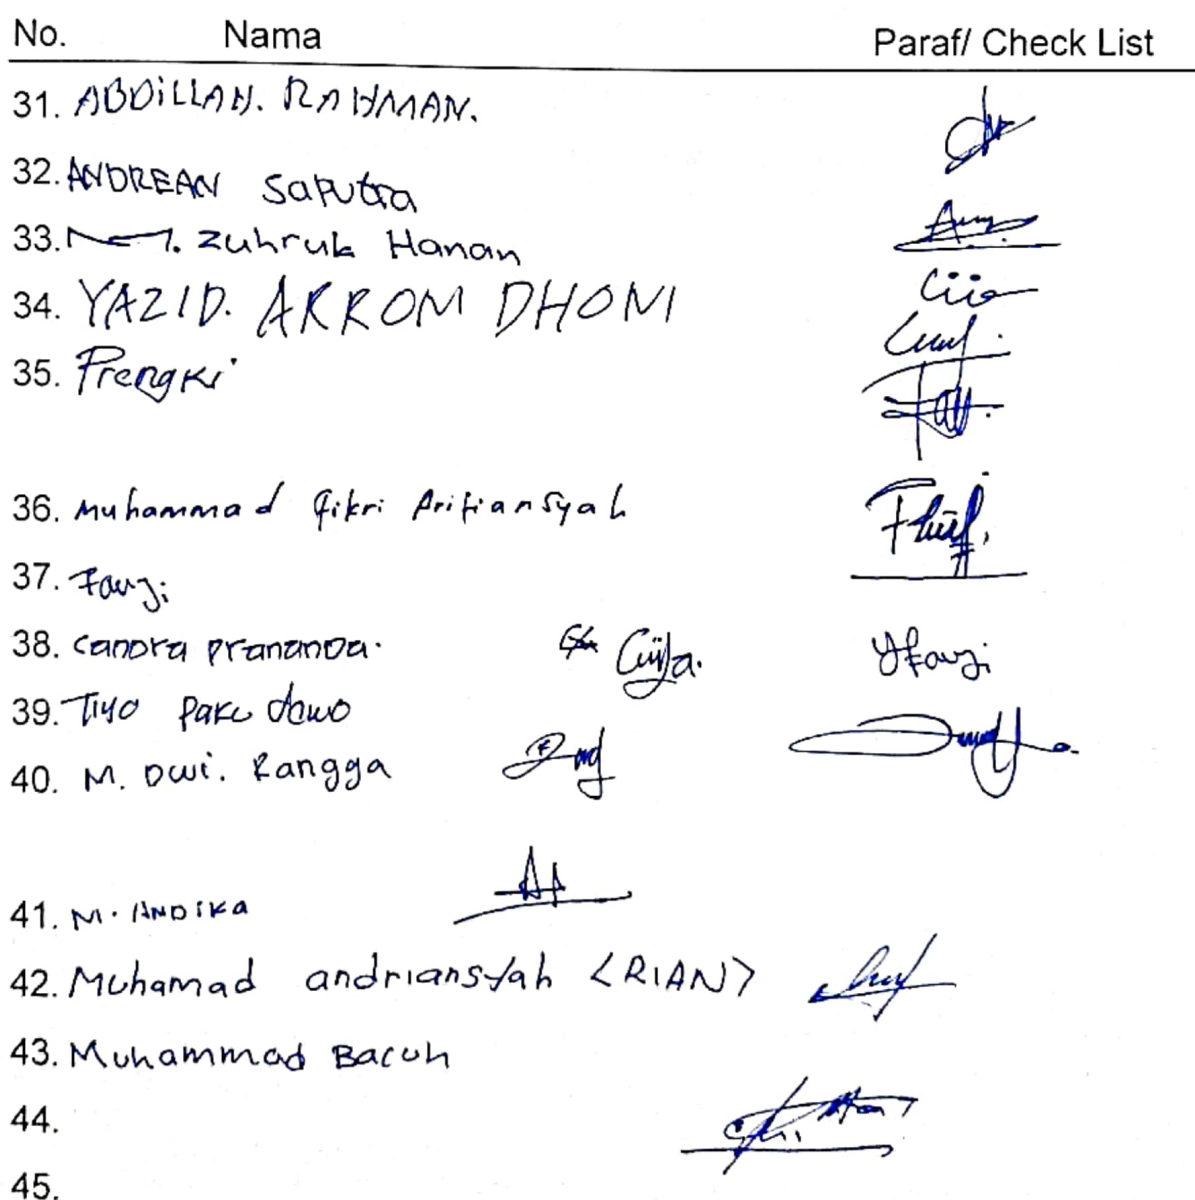 No. Nama Paraf/ Check List
31. ABDiLLAH. RAHMAN.
32. ANDREAN Saputra
33. M. Zuhruk Hanan
34. YAZID. AKROM DHONI
35. Prengki
36. Muhammad fikri Arifiansyah
37. Fauzi
38. Candra prananda.
39. Tiyo Paku dewo
40. M. Dwi. Rangga
Yfauzi
41. M. ANDIKA
42. Muhamad andriansyah <RIAN>
43. Muhammad Bacuh
44.
45.